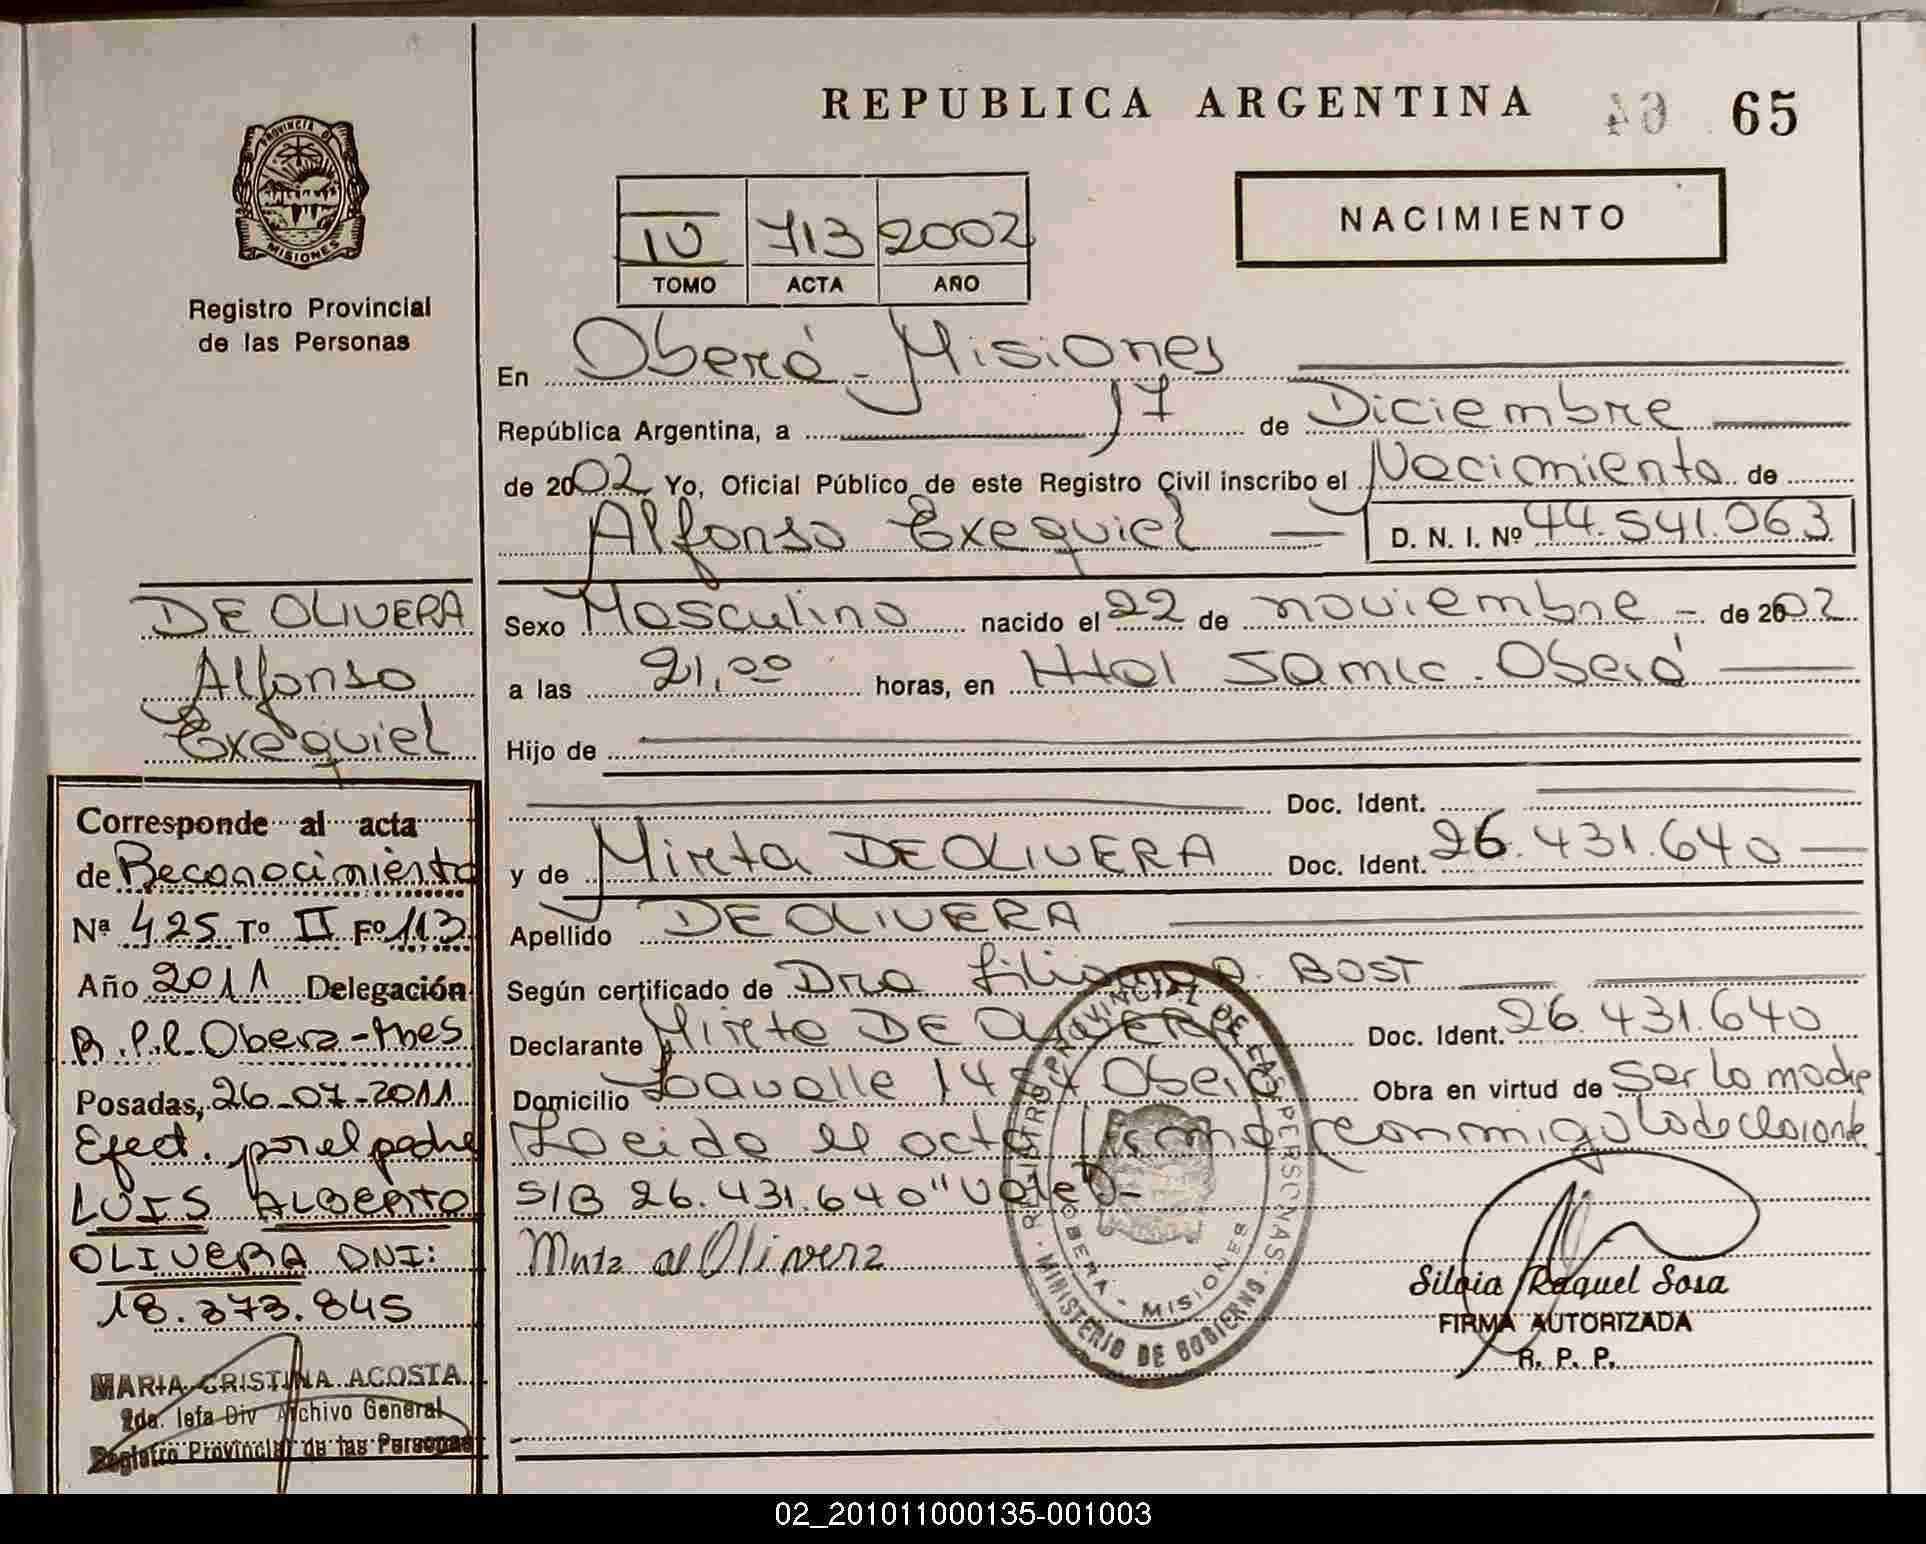 REPUBLICA ARGENTINA
65
PROVINCIA DE
MISIONES
Registro Provincial
de las Personas
IV 713 2002
TOMO ACTA AÑO
NACIMIENTO
En Oberá - Misiones
República Argentina, a 17 de Diciembre
de 2002 Yo, Oficial Público de este Registro Civil inscribo el Nacimiento de
Alfonso Exequiel D. N. I. Nº 44.541.063
Sexo Masculino nacido el 22 de noviembre - de 2002
a las 21,00 horas, en Htal Samic. Oberá
Hijo de
Doc. Ident.
y de Mirta DE OLIVERA Doc. Ident. 26.431.640
Apellido DE OLIVERA
Según certificado de Dra Liliana BOST
Declarante Mirta DE OLIVERA Doc. Ident. 26.431.640
Domicilio Lavalle Oberá Obra en virtud de Ser la madre
Leida el acta firma conmigo la declarante
S/B 26.431.640 "Vale" -
Mirta de Olivera
REGISTRO PROVINCIAL DE LAS PERSONAS
MINISTERIO DE GOBIERNO
OBERA - MISIONES
Silvia Raquel Sosa
FIRMA AUTORIZADA
R. P. P.
DE OLIVERA
Alfonso
Exequiel
Corresponde al acta
de Reconocimiento
Nª 425 Tº II Fº 113
Año 2011 Delegación
Obera - Mnes
Posadas, 26-07-2011
Efect. por el padre
LUIS ALBERTO
OLIVERA DNI:
18.373.845
MARIA CRISTINA ACOSTA
2da. Jefa Div Archivo General
Registro Provincial de las Personas
02_201011000135-001003